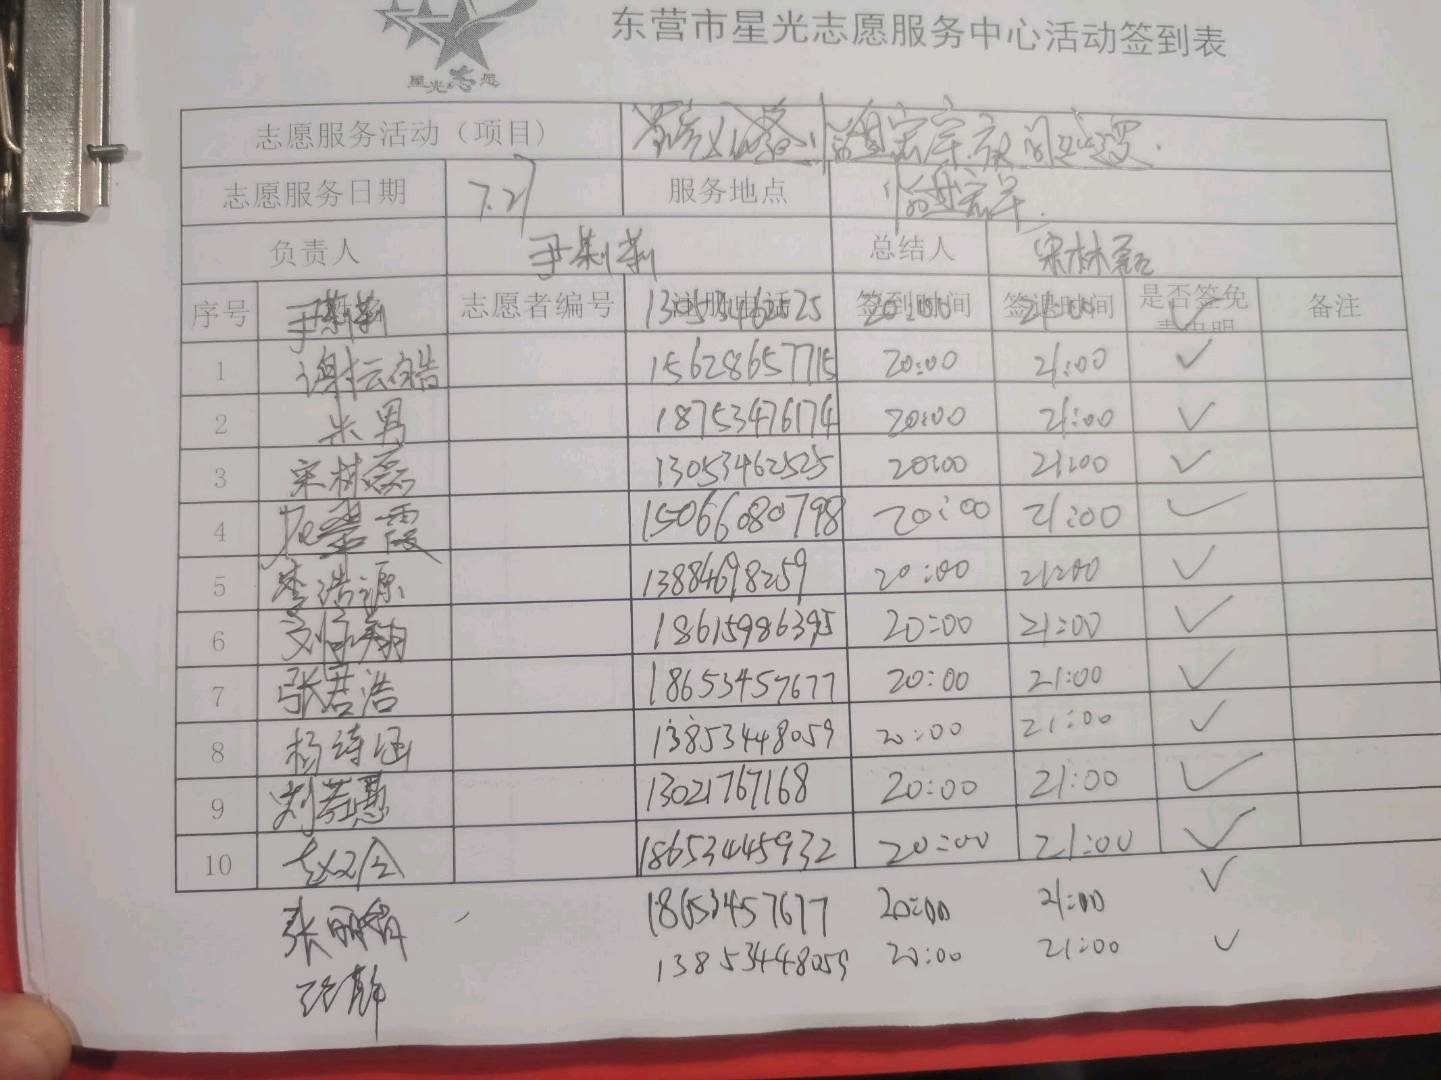 星光志愿
东营市星光志愿服务中心活动签到表
志愿服务活动（项目）
志愿服务日期 7.27 服务地点
负责人 尹莉莉 总结人 宋林磊
序号 尹莉莉 志愿者编号 13053462525 签到时间 20:00 签退时间 21:00 是否签免 ✓ 备注
1 谢云皓 15628657715 20:00 21:00 ✓
2 朱男 18753476174 20:00 21:00 ✓
3 宋林磊 13053462525 20:00 21:00 ✓
4 霞 15066080798 20:00 21:00 ✓
5 李浩源 13884698259 20:00 21:00 ✓
6 18615986395 20:00 21:00 ✓
7 张君浩 18653457677 20:00 21:00 ✓
8 杨诗涵 13853448059 20:00 21:00 ✓
9 刘若惠 13021767168 20:00 21:00 ✓
10 18653445932 20:00 21:00 ✓
张丽娟 18653457677 20:00 21:00 ✓
静 13853448059 20:00 21:00 ✓